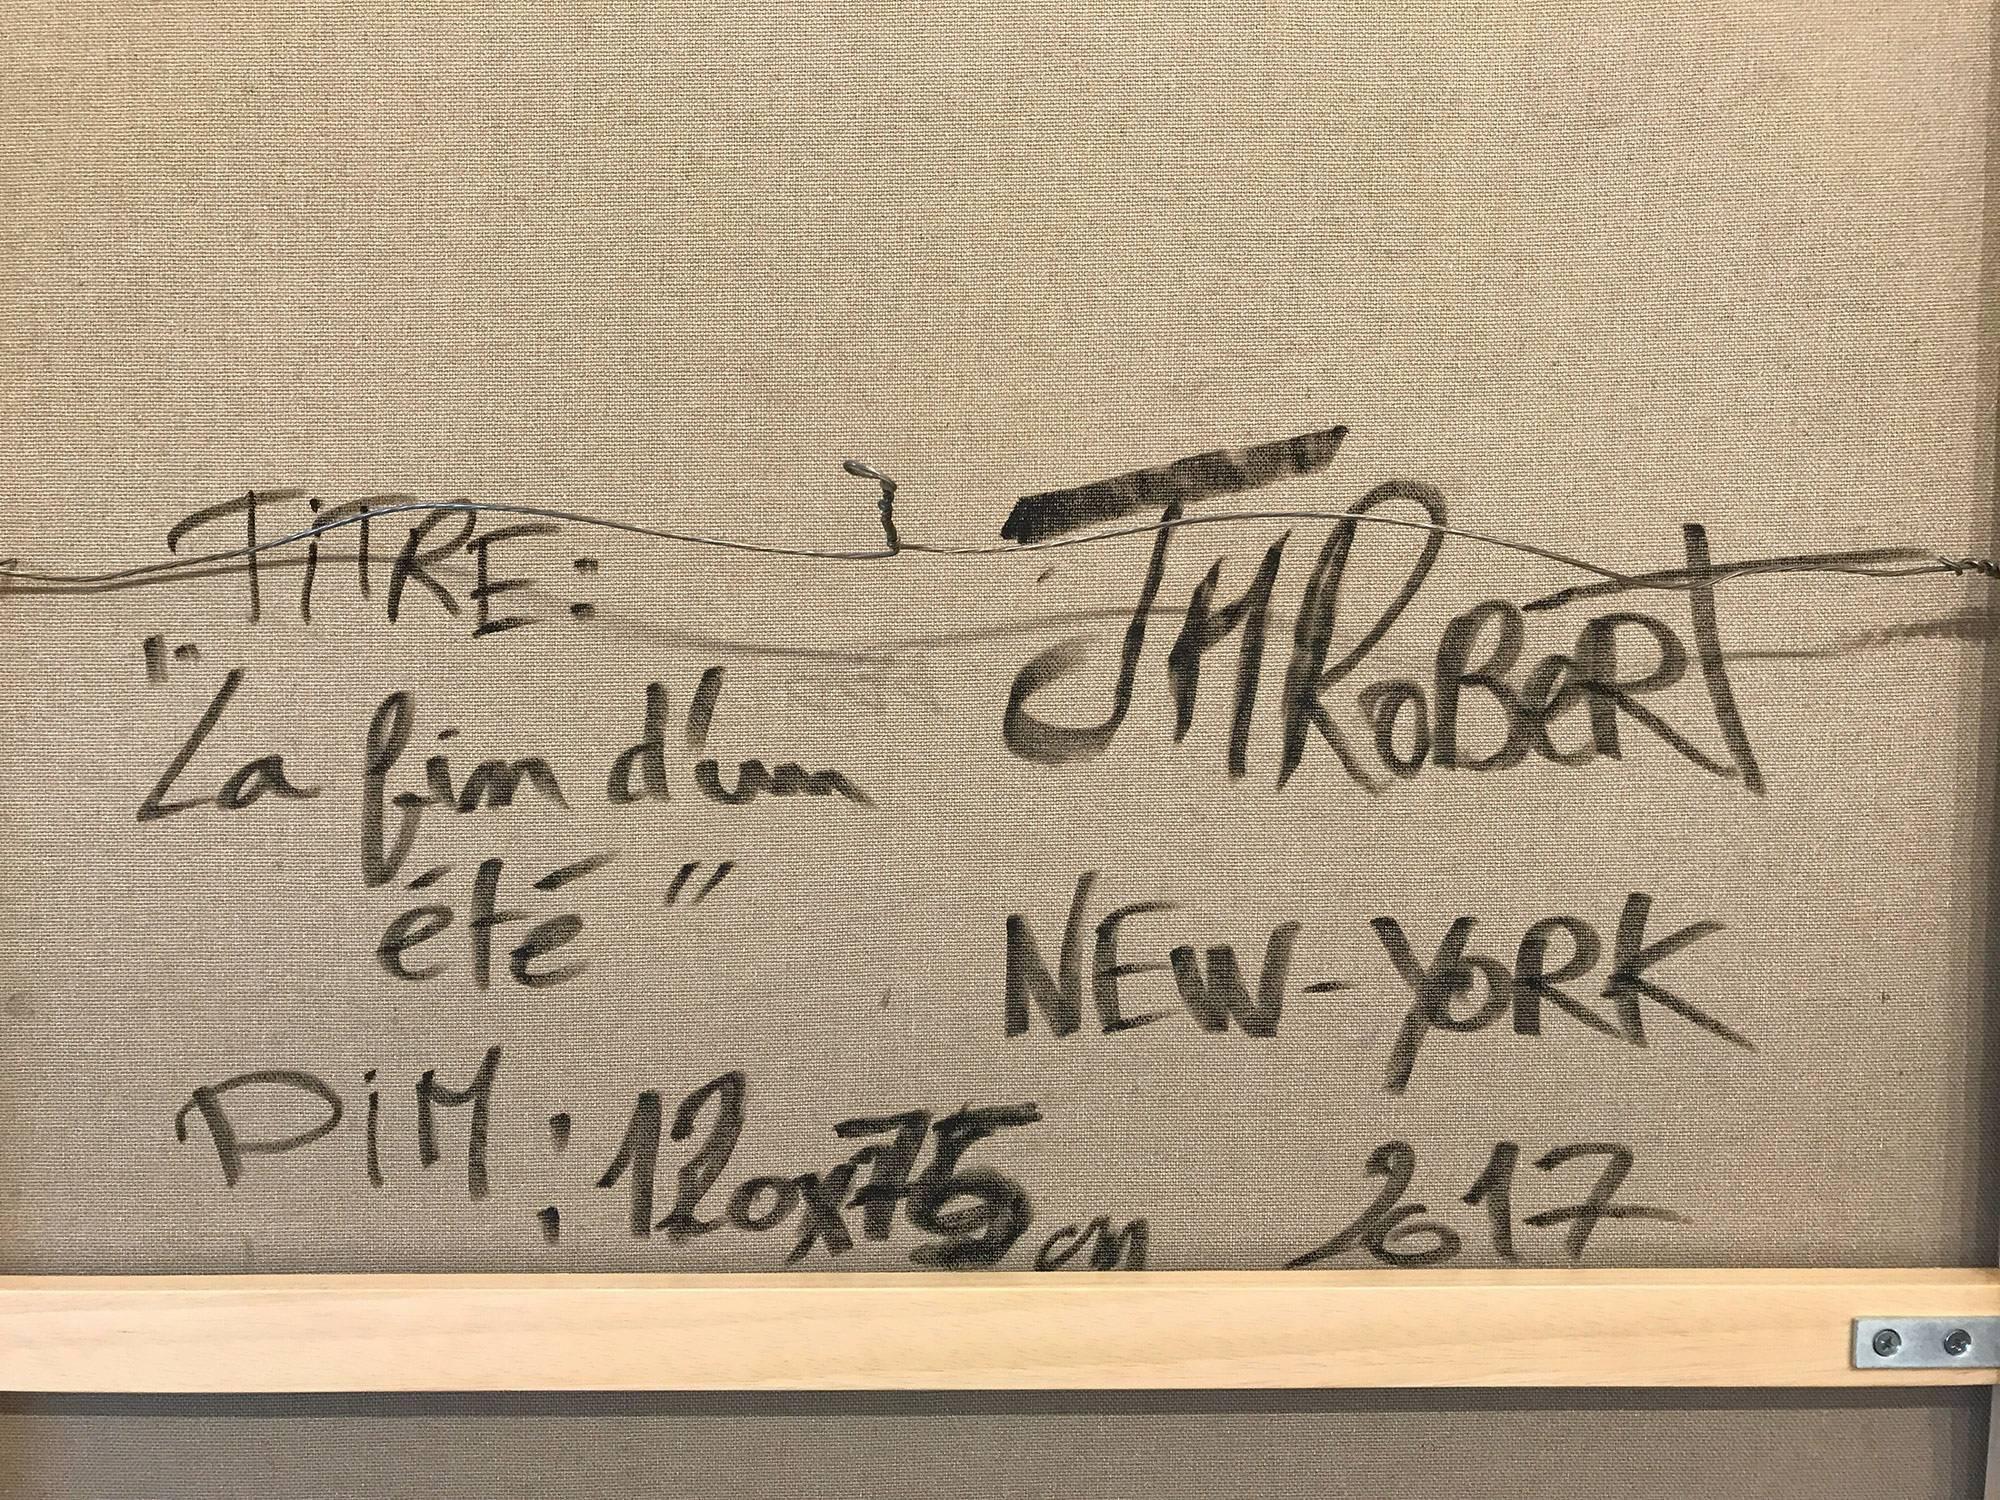 TiTRE:
"La fin d'un
été"
DiM: 120x75 cm
JMRoBeRT
NEW-YoRK
2017